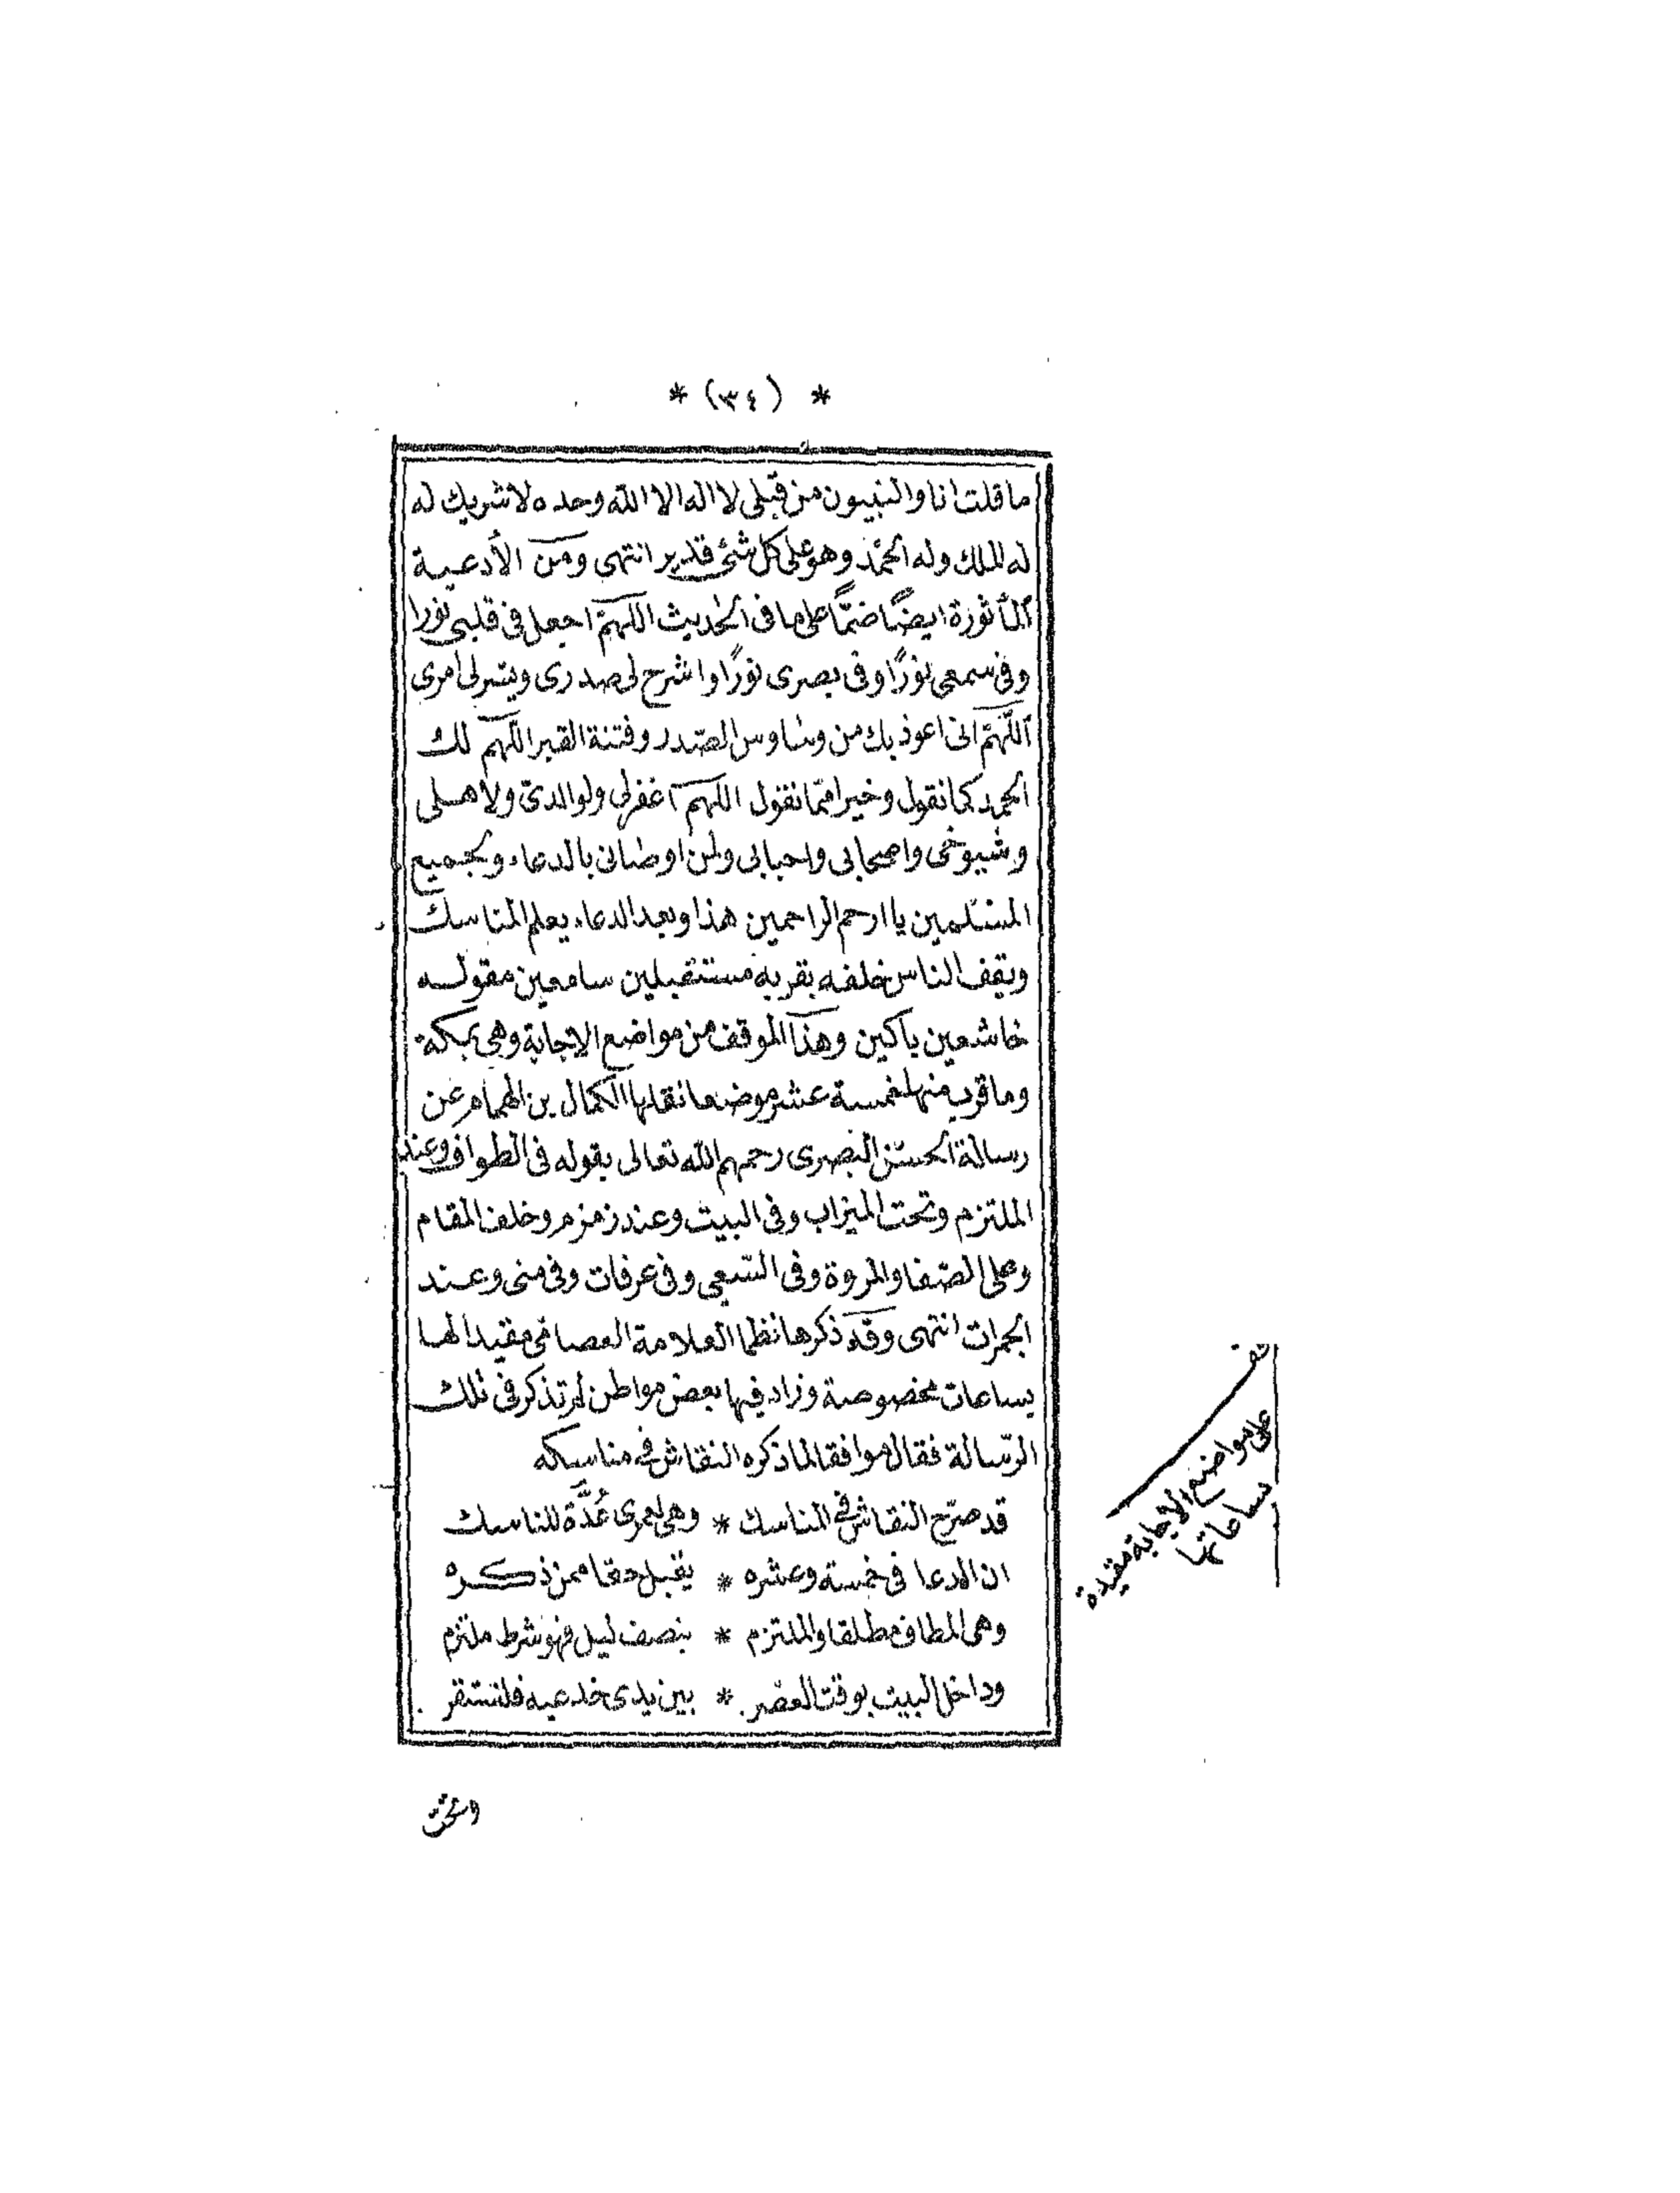 * (٣٤) *
ما قلت انا والنبيون من قبلى لا اله الا الله وحده لا شريك له
له الملك وله الحمد وهو على كل شئ قدير انتهى ومن الأدعية
المأثورة ايضًا ضمًّا على ما فى الحديث اللهمّ اجعل فى قلبى نورا
وفى سمعى نورًا وفى بصرى نورًا واشرح لى صدرى ويسر لى امرى
اللّهمّ انى اعوذ بك من وساوس الصّدر وفتنة القبر اللّهم لك
الحمد كما نقول وخيرا ممّا نقول اللهم اغفر لى ولوالدىّ ولاهلى
وشيوخى واصحابى واحبابى ولمن اوصانى بالدعاء ولجميع
المسلمين يا ارحم الراحمين هذا وبعد الدعاء يعلم المناسك
ويقف الناس خلفه بقربه مستقبلين سامعين مقوله
خاشعين باكين وهذا الموقف من مواضع الاجابة وهى بمكة
وما قرب منها خمسة عشر موضعا نقلها الكمال بن الهمام عن
رسالة الحسن البصرى رحمهم الله تعالى بقوله فى الطواف وعند
الملتزم وتحت الميزاب وفى البيت وعند زمزم وخلف المقام
وعلى الصّفا والمروة وفى السّعى وفى عرفات وفى منى وعند
الجمرات انتهى وقد ذكرها نظما العلامة العصامى مقيدا لها
بساعات مخصوصة وزاد فيها بعض مواطن لم تذكر فى تلك
الرّسالة فقال موافقا لما ذكره النقاش فى مناسكه
قد صرّح النقاش فى المناسك * وهى لعمرى عُدَّة للناسك
ان الدعا فى خمسة وعشره * يقبل حقا ممن ذكره
وهى المطاف مطلقا والملتزم * بنصف ليل فهو شرط ملتزم
وداخل البيت بوقت العصر * بين يدى جذعيه فلتستقر
وتحت
قف
على مواضع الاجابة مقيدة
بساعاتها